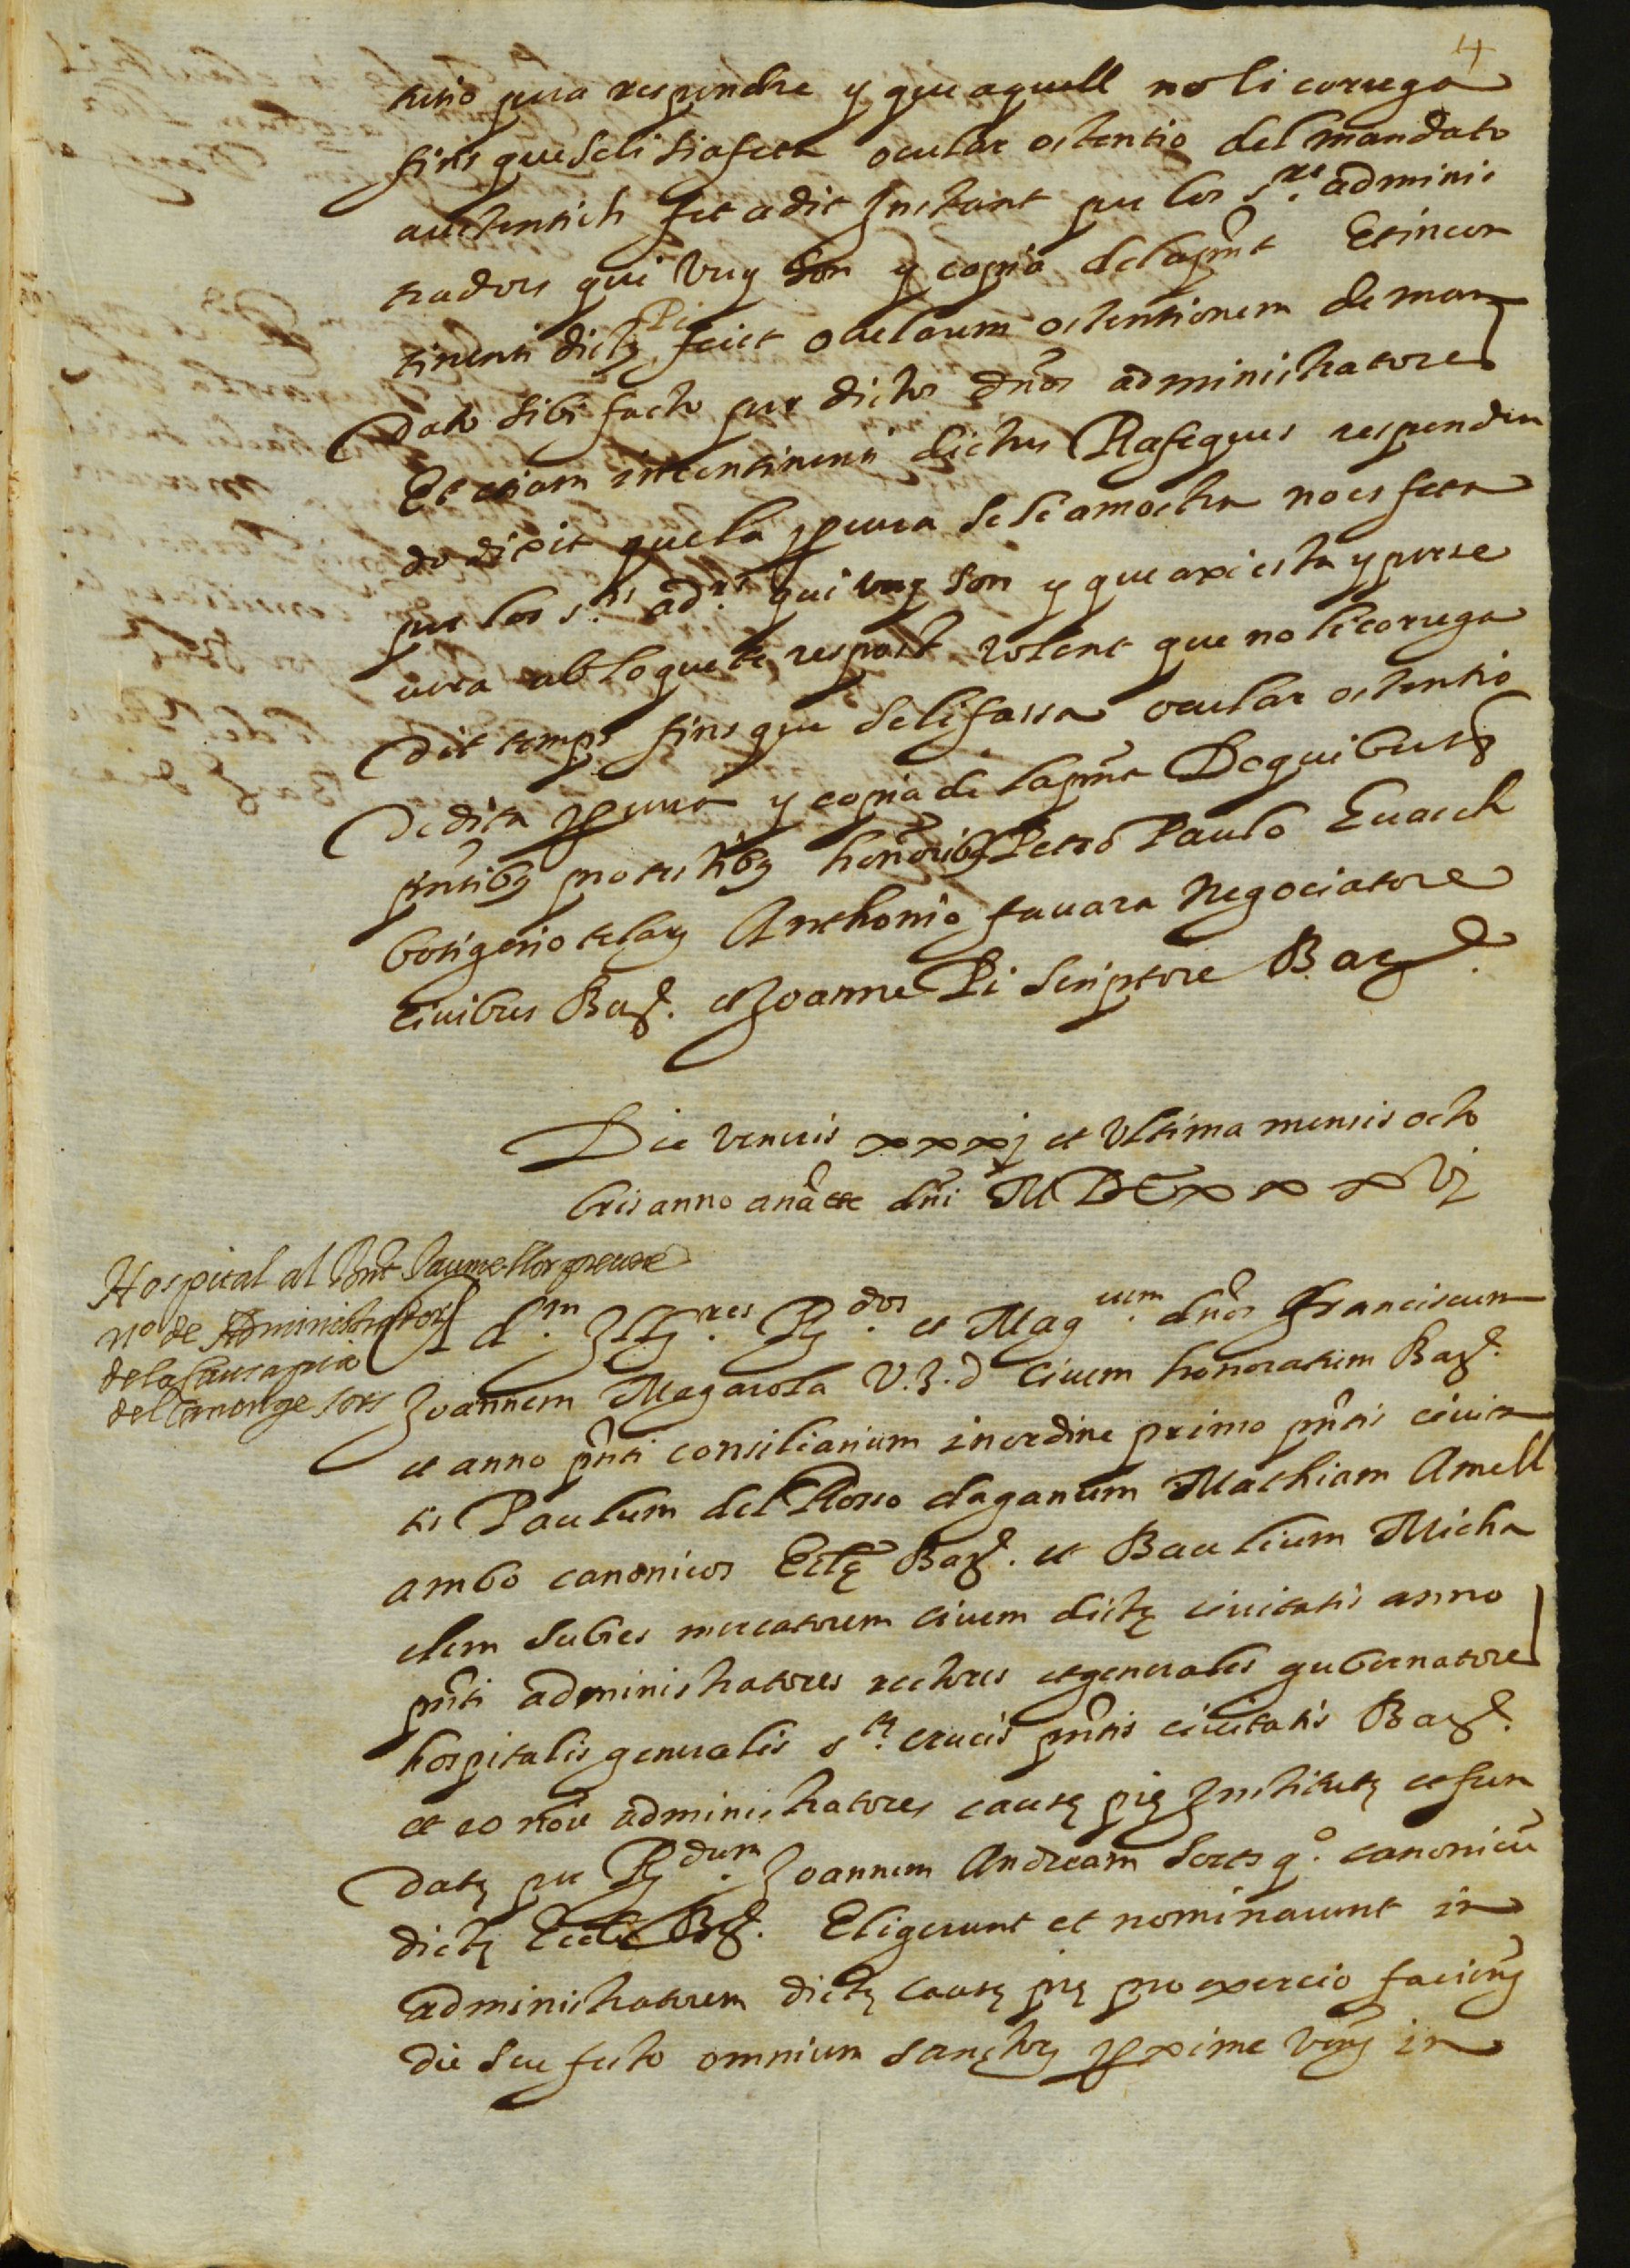 4
turio pera respondre y que aquell no li correga
fins que seli sia feta ocular ostentio del mandato
auctentich fet a dit Instant per los s.rs adminis
tradors qui vuy son y copia de la pnt Et incon
tinenti dictus Pi fecit ocularem ostentionem de man
dato sibi facto per dictos dnos administratores
Et etiam incontinenti dictus Rafeques responden
do dixit que la procura se li amostra no es feta
per los s.rs ad.rs qui vuy son y que axi esta y perse
vera ab lo que te respost volent que no li correga
dit temps fins que seli fassa ocular ostentio
de dita procura y copia de la pnt De quibus
pntibus pro testibus honoribus Petro Paulo Euarch
botigerio telarum Anthonio fauara Negociatore
Ciuibus Barne. et Joanne Pi Scriptore Barne.
Die veneris xxxj et vltima mensis octo
bris anno a natte dni MDCxxxvj
Hospital al Pnt Jaume Llor preuere
no de Administrador
de la Causa pia
del Canonge Sors
d.m Ill.res R.dos et Mag.cum dnos Franciscum
Joannem Magarola V.J.d Ciuem honoratum Barne.
et anno pnti consiliarium in ordine primo pntis ciuita
tis Paulum del Rosso deganum Mathiam Amell
ambo canonicos Ecle Barne. et Bautium Micha
elem Subies mercatorem ciuem dicte ciuitatis anno
pnti administratores rectores et generales gubernatores
hospitalis generalis s.te crucis pntis ciuitatis Barne.
et eo noie administratores cause pie Institute et fun
date per R.dum Joannem Andream Sorts q.o canonicu
dicte Ecle Barne. Eligerunt et nominarunt in
administratorem dicte cause pie pro exercio faciend
die seu festo omnium sanctorum proxime ven in